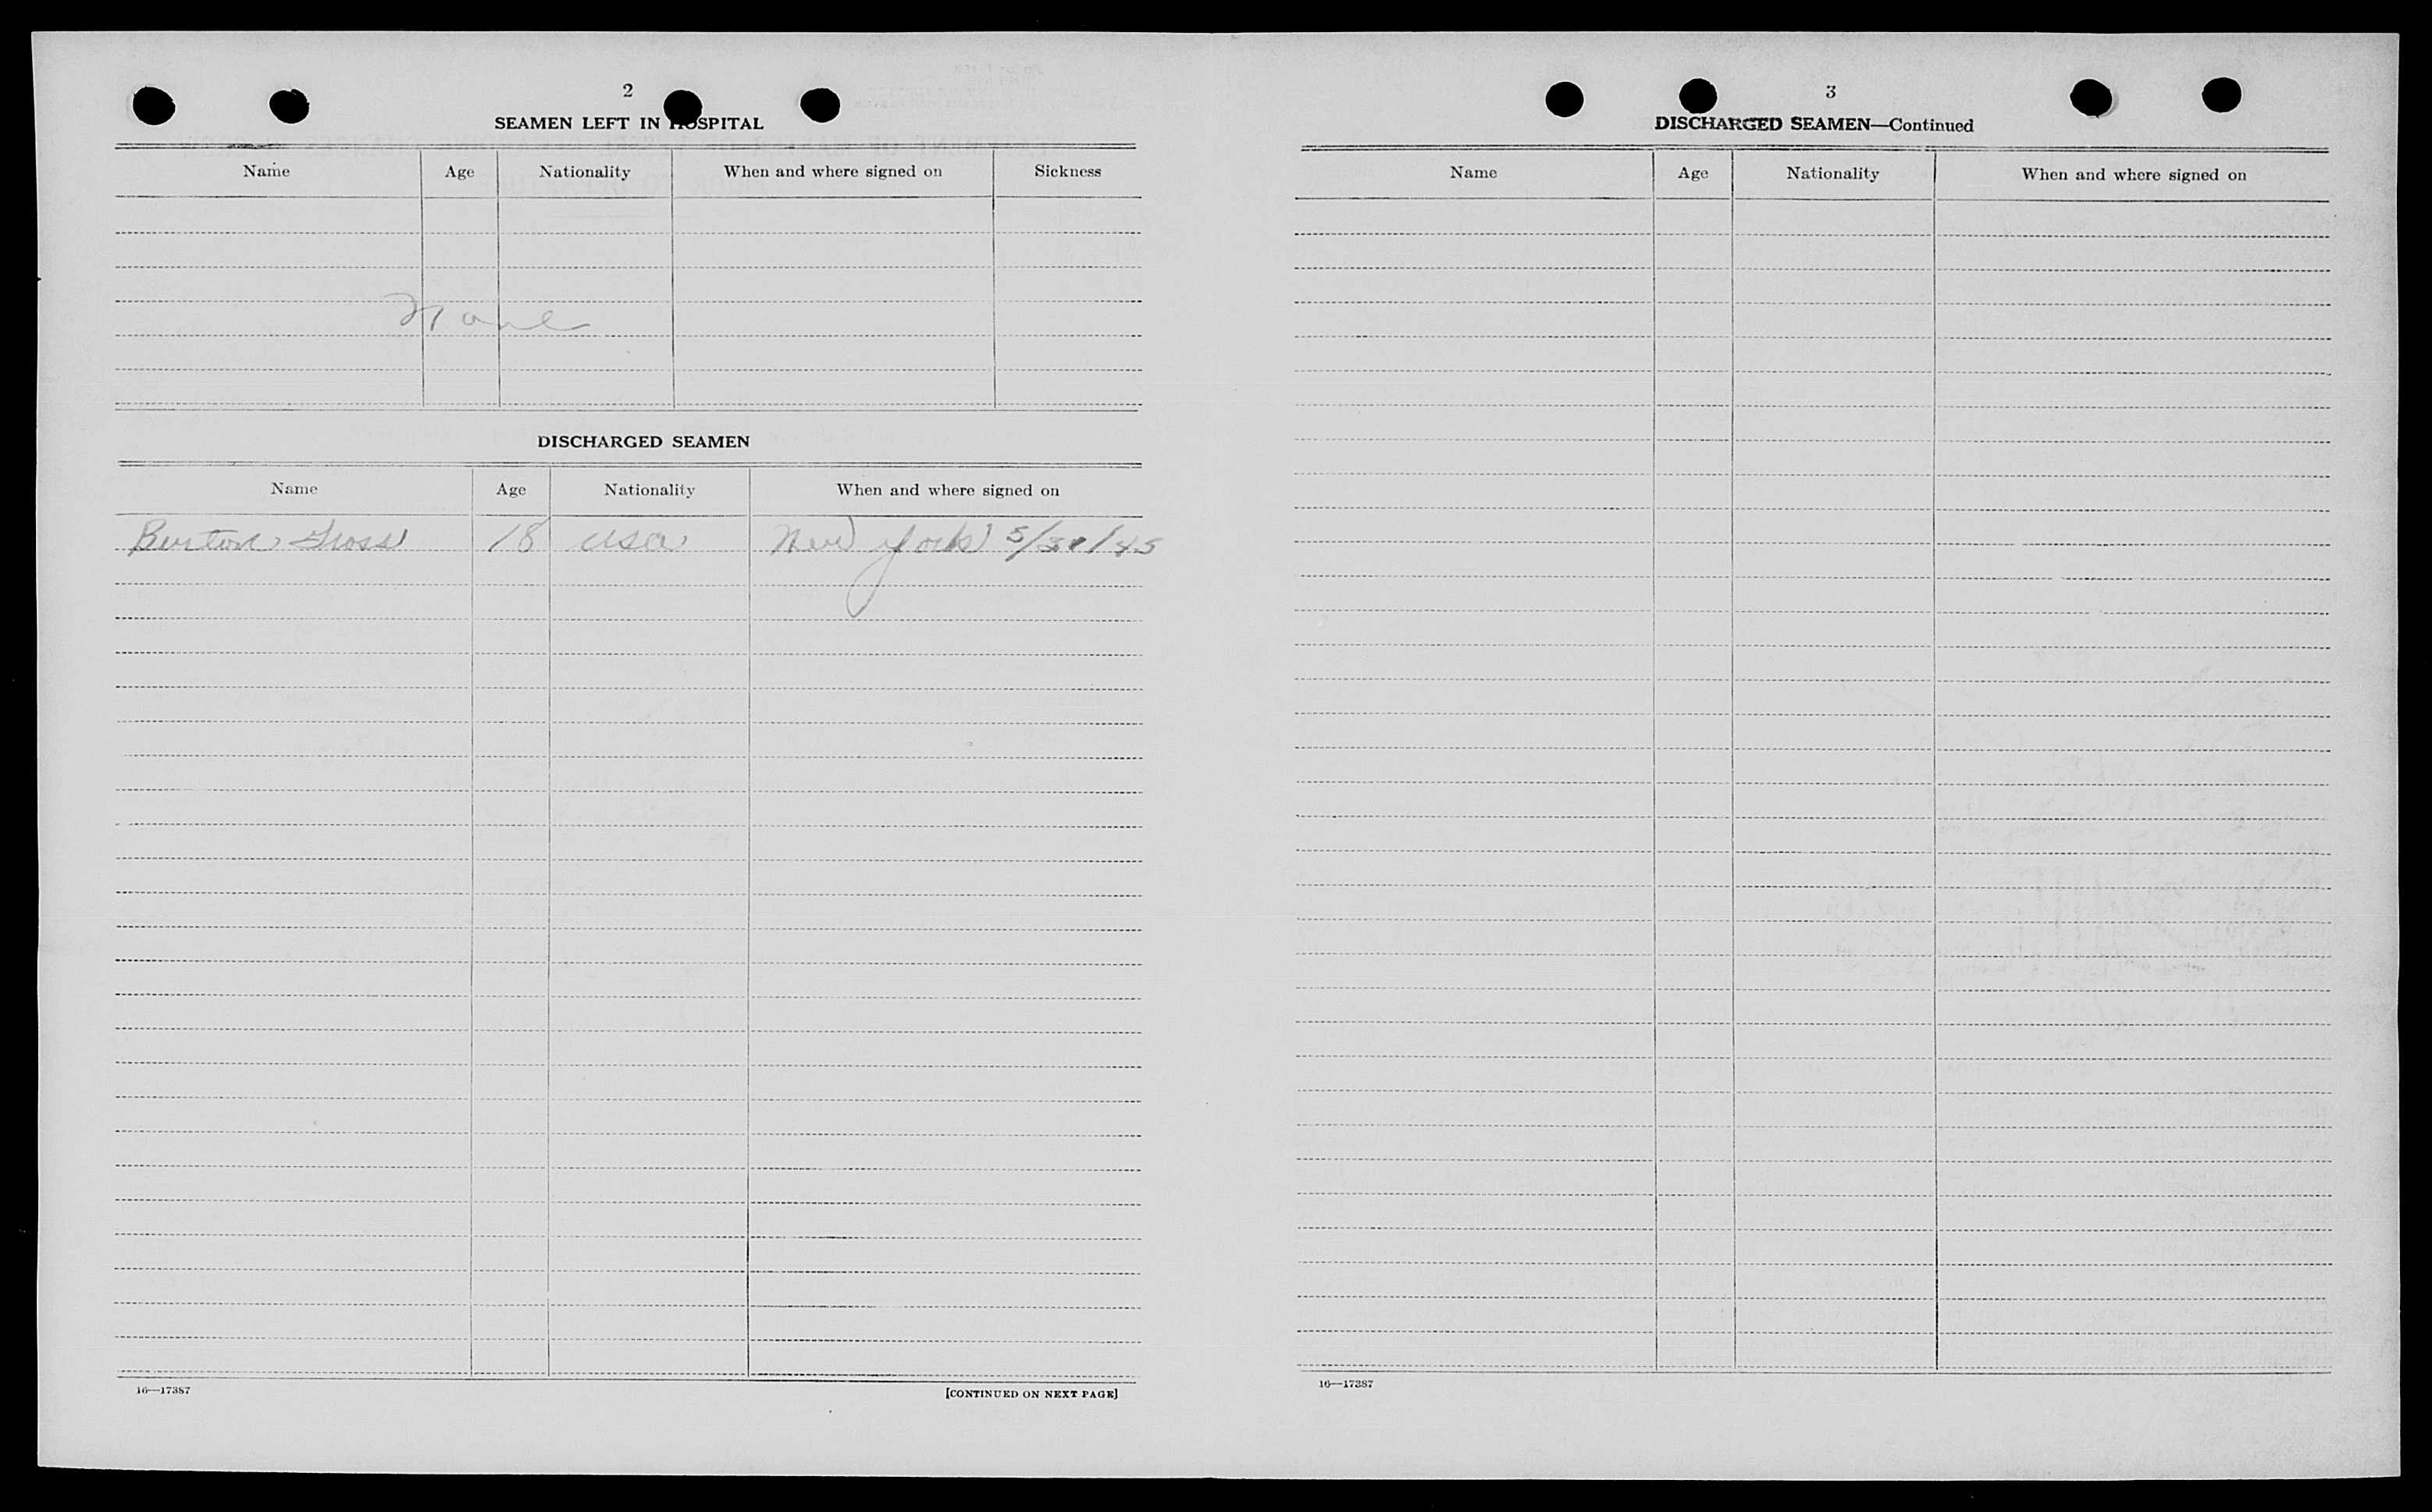 2
SEAMEN LEFT IN HOSPITAL
Name Age Nationality When and where signed on Sickness
None
DISCHARGED SEAMEN
Name Age Nationality When and where signed on
Burton Gross 18 USA New York 5/31/45
16—17387
[CONTINUED ON NEXT PAGE]
3
DISCHARGED SEAMEN—Continued
Name Age Nationality When and where signed on
16—17387